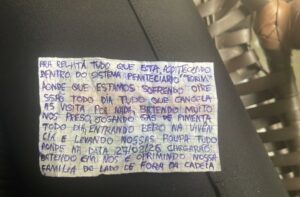 PRA RELATA TUDO QUE ESTA ACONTECENDO
DENTRO DO SISTEMA PENITECIARIO
AONDE QUE ESTAMOS SOFRENDO OPRE
SSÃO TODO DIA TUDO QUE CANCELA
AS VISITA POR NADA, BATENDO MUITO
NOS PRESO, JOGANDO GAS DE PIMENTA
TODO DIA, ENTRANDO DENTRO NA VIVEN
CIA E LEVANDO NOSSAS ROUPA TUDO
AONDE NA DATA CHEGARÃO
BATENDO EM NOS E OPRIMINDO NOSSA
FAMILIA DO LADO DE FORA DA CADEIA